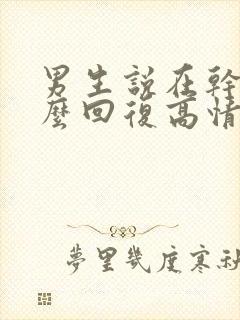 男生說在幹
麼回復高情
夢里幾度寒秋